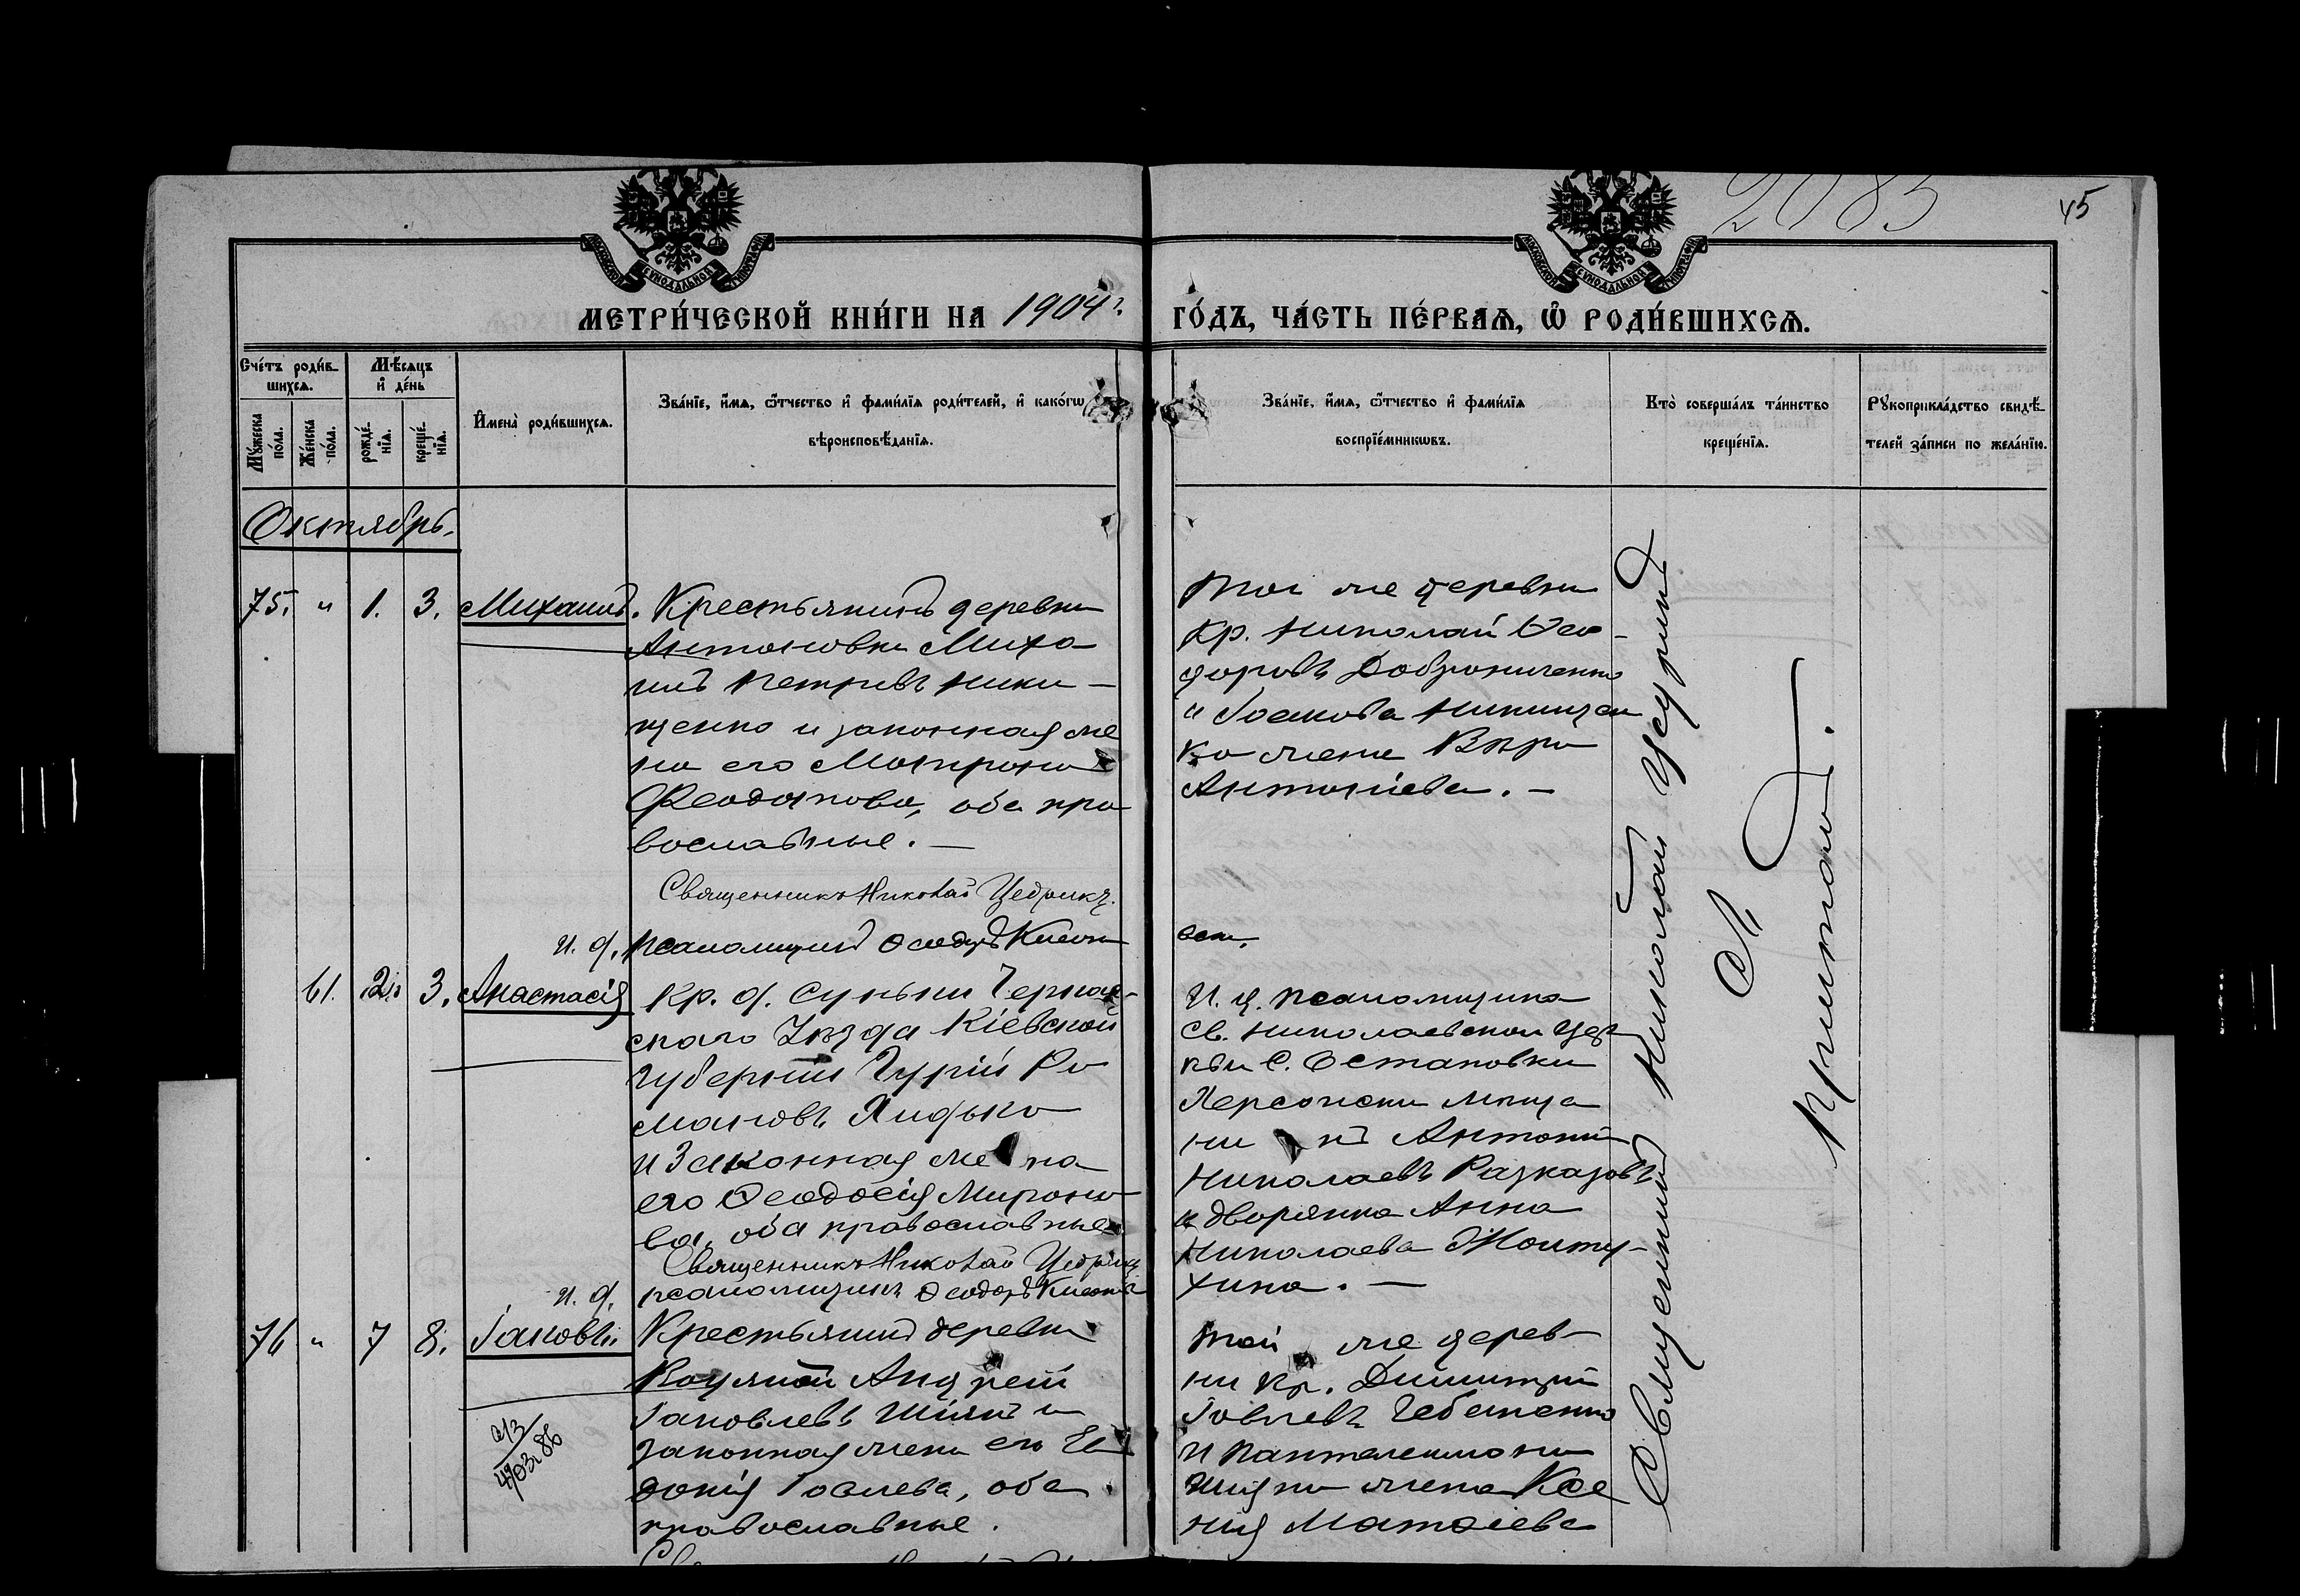 2083
45
МЕТРИ́ЧЕСКОЙ КНИ́ГИ НА 1904 г. ГО́ДЪ, ЧА́СТЬ ПЕ́РВАѦ, Ѡ҆ РОДИ́ВШИХСѦ.
Сче́тъ роди́в-
шихсѧ.
Мꙋ́жеска по́ла.
Же́нска по́ла.
Мѣ́сѧцъ
и҆ де́нь
рожде́-
нїѧ.
креще́-
нїѧ.
И҆мена̀ роди́вшихсѧ.
Зва́нїе, и҆́мѧ, ѻ҆́тчество и҆ фами́лїѧ роди́телей, и҆ како́гѡ
вѣроисповѣ́данїѧ.
Зва́нїе, и҆́мѧ, ѻ҆́тчество и҆ фами́лїѧ
воспрїе́мникѡвъ.
Кто̀ соверша́лъ та́инство
креще́нїѧ.
Рꙋкоприкла́дство свидѣ́-
телей за́писи по жела́нїю.
Октябрь.
75. " 1. 3. Михаилъ.
Крестьянинъ деревни
Антоновки Миха-
илъ Петровъ Ники-
щенко и законная же
на его Матрона
Феодотова, оба пра
вославные. —
Священникъ Николай Цедрикъ.
и. д. псаломщика Ѳеодоръ
Той же деревни
Кр. Николай Ѳео-
доровъ
и Іоакова
ко жена
Антоніева. —
61. 2. 3. Анастасія
Кр. д. Суньки Черкас-
скаго Уѣзда Кіевской
Губерніи Гурій Ро
мановъ Хидько
и Законная же на
его Ѳеодосія Мироно
ва, оба православные
Священникъ Николай Цедрикъ
и. д. псаломщика Ѳеодоръ
И. д. псаломщика
Св. Николаевской Цер
кви С. Остаповки
Херсонски мѣща
ни нъ Антоній
Николаевъ Разказовъ
и дворянка Анна
Николаева Жолту-
хина. —
76 " 7 8. Іаковъ.
Крестьянинъ деревни
Андрей
Іаковлевъ Шіянъ и
законная жена его Ев
докія Іовлева, оба
православные.
Той же дерев-
ни Кр. Димитрій
Іовлевъ
и Пантелеимона
Шіяна жена Ксе
нія Матѳіева
Священникъ Николай Цедрикъ